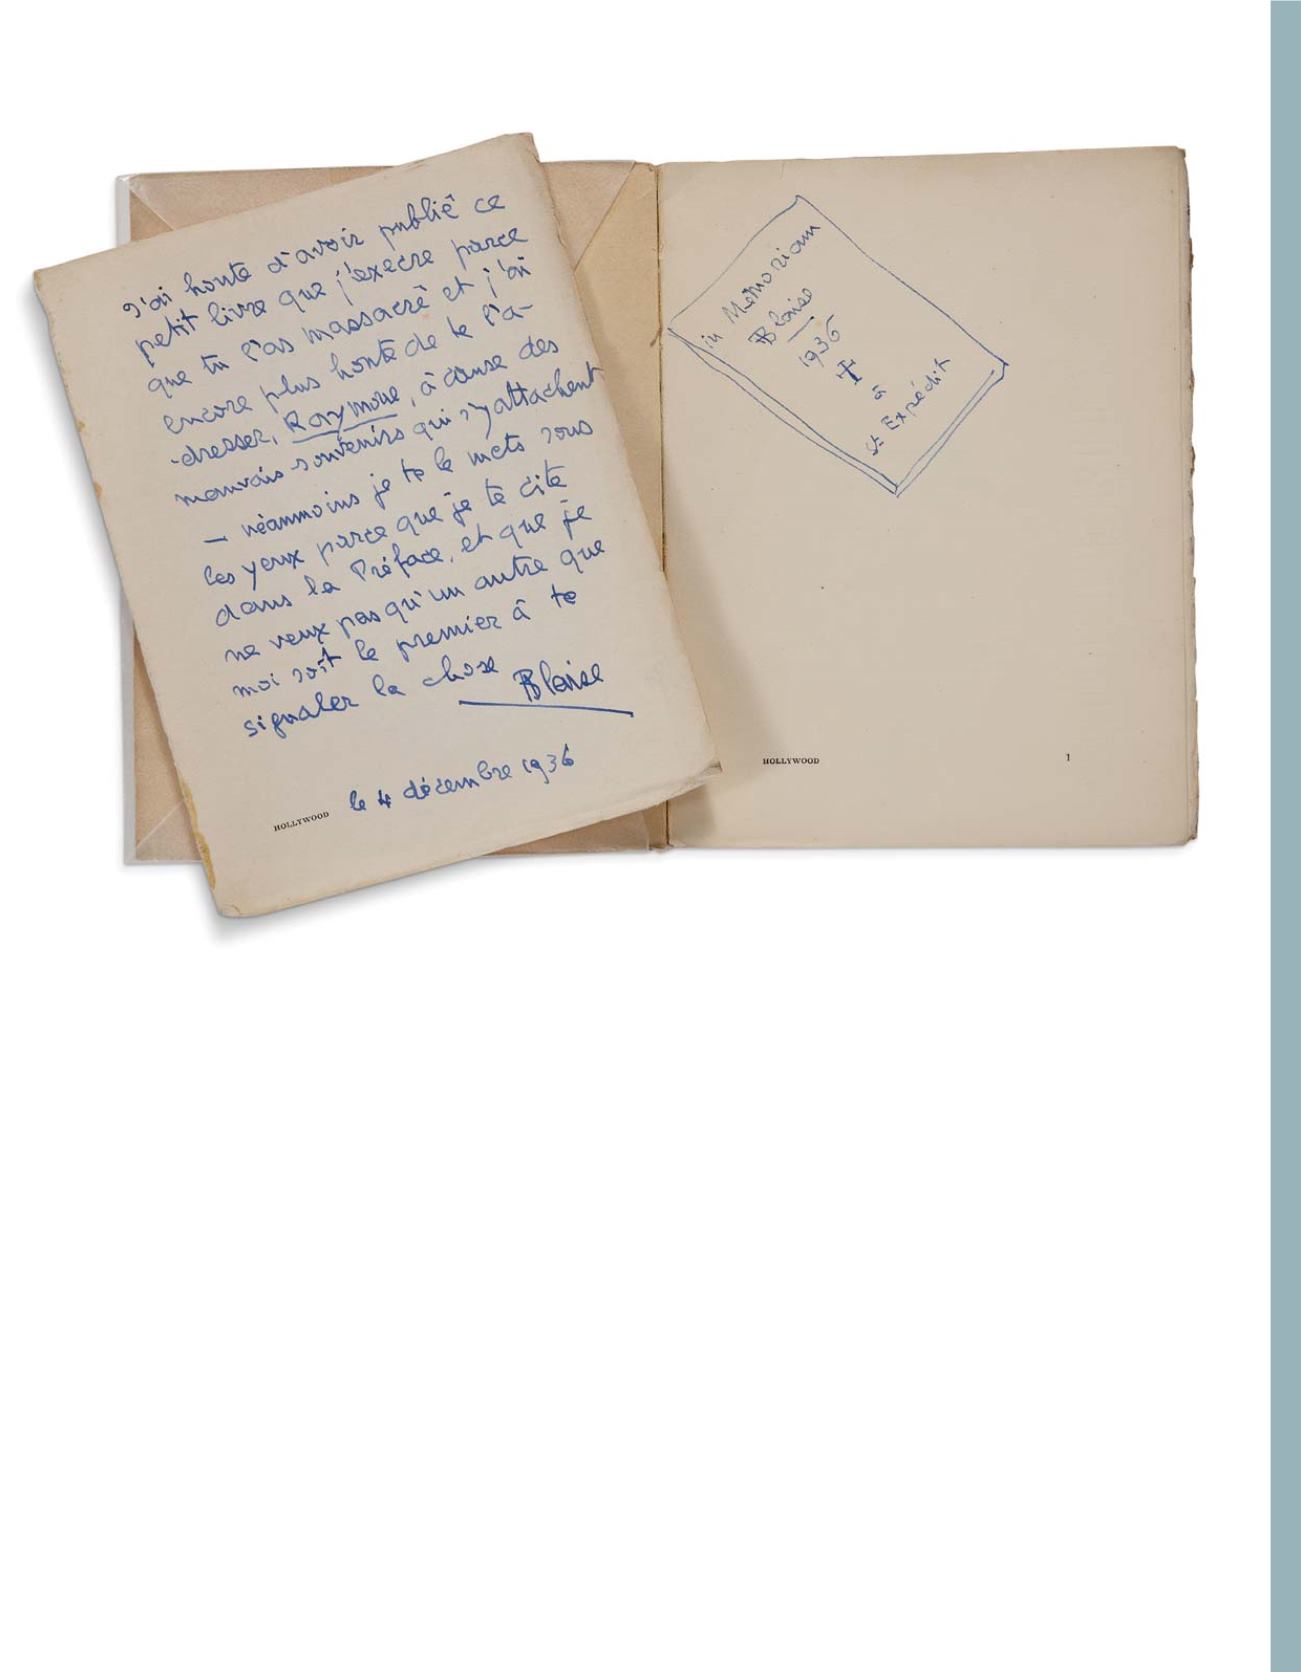 J'ai honte d'avoir publié ce
petit livre que j'exècre parce
que tu l'as massacré et j'ai
encore plus honte de te l'a-
-dresser, Raymone, à cause des
mauvais souvenirs qui s'y attachent
— néammoins je te le mets sous
les yeux parce que je te cite
dans la Préface, et que je
ne veux pas qu'un autre que
moi soit le premier à te
signaler la chose Blaise
le 4 décembre 1936
HOLLYWOOD
in Memoriam
Blaise
1936
à
St Expédit
HOLLYWOOD 1